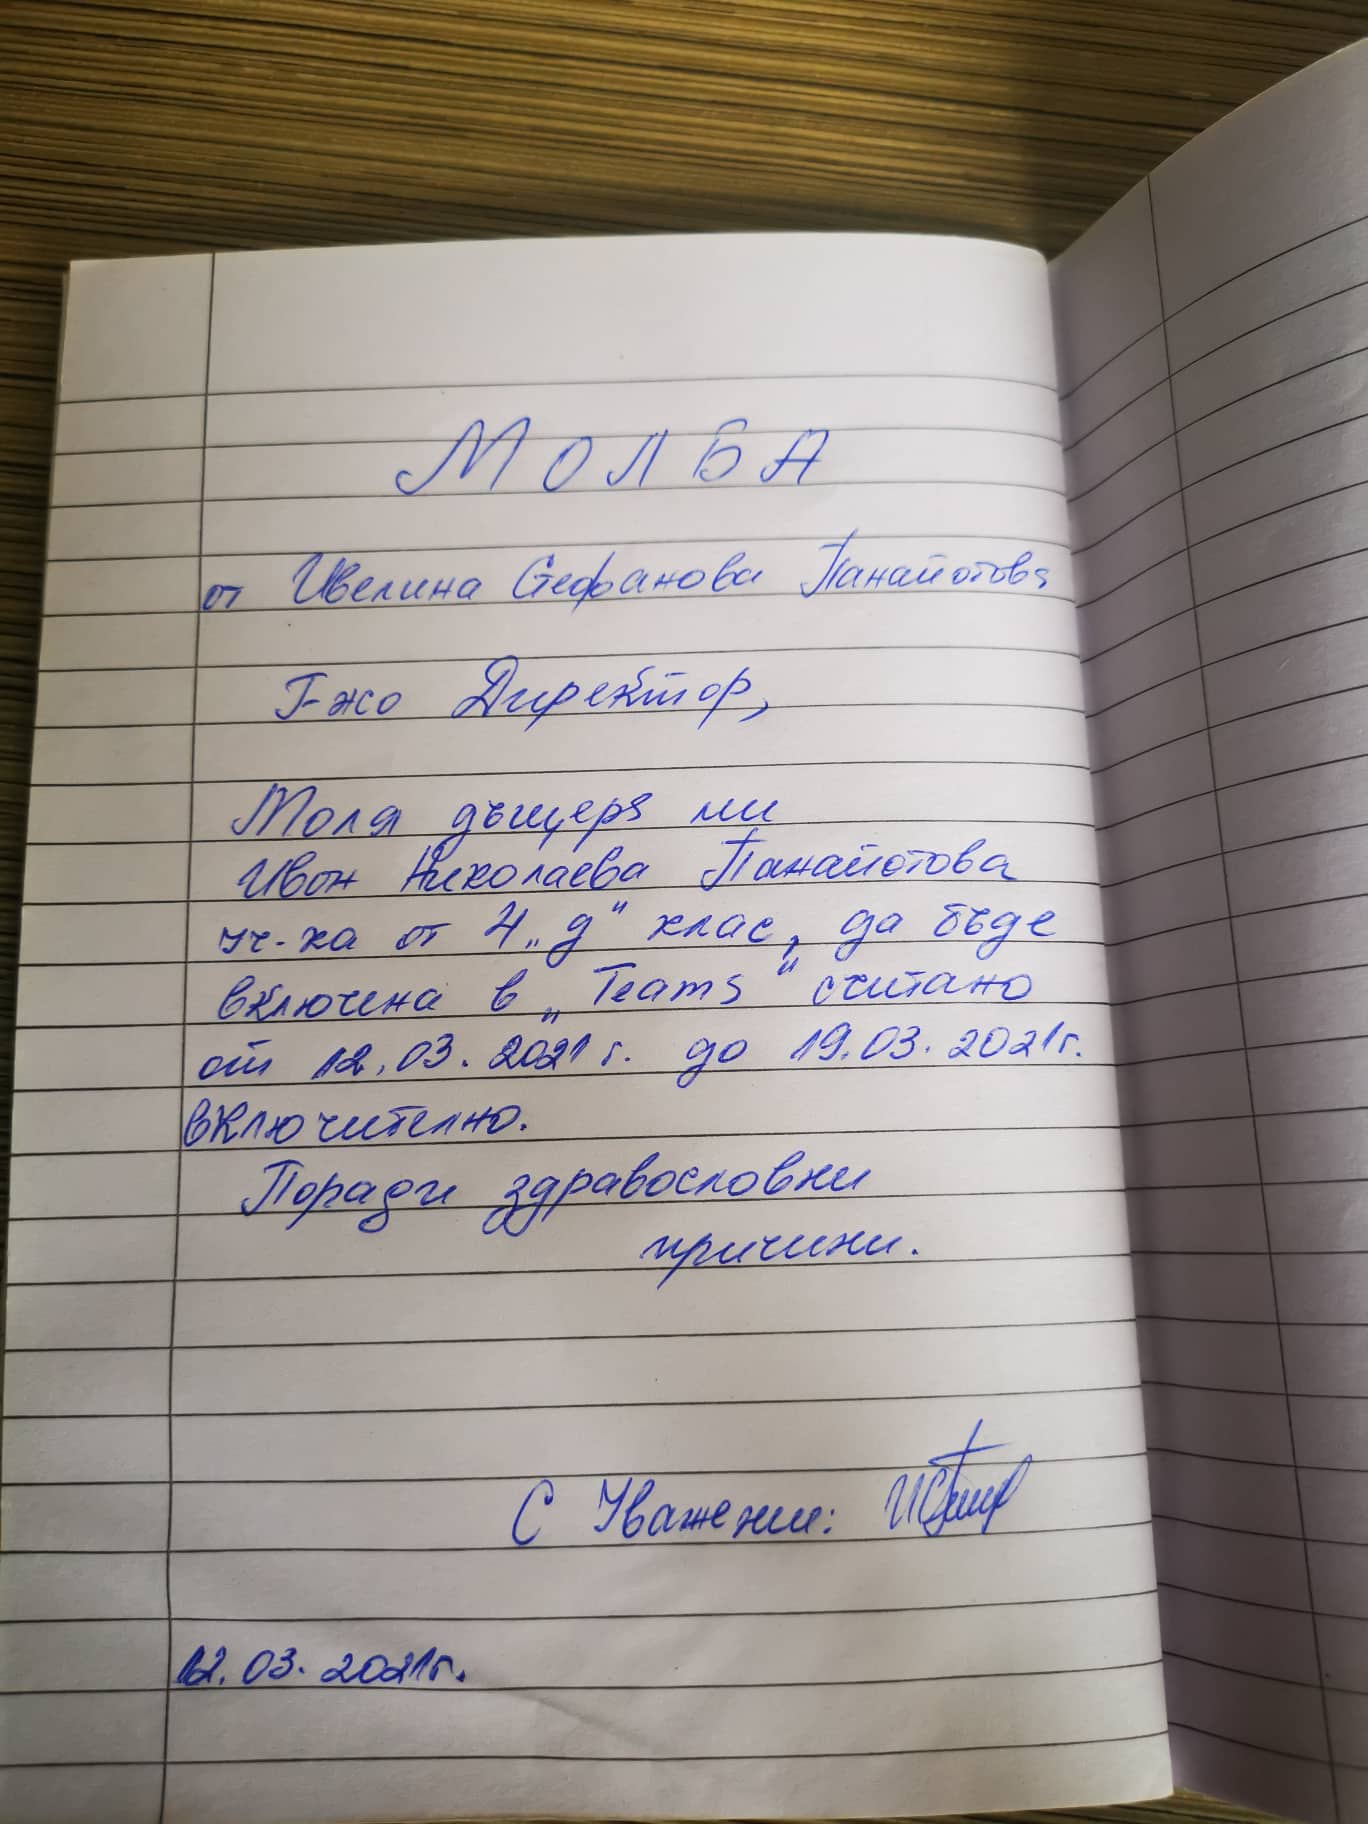 МОЛБА
от Ивелина Стефанова Панайотова
Г-жо Директор,
Моля дъщеря ми
Ивон Николаева Панайотова
уч-ка от 4 „Д“ клас, да бъде
включена в „Teams“ считано
от 12.03.2021г. до 19.03.2021г.
включително.
Поради здравословни
причини.
С Уважение:
12.03.2021г.